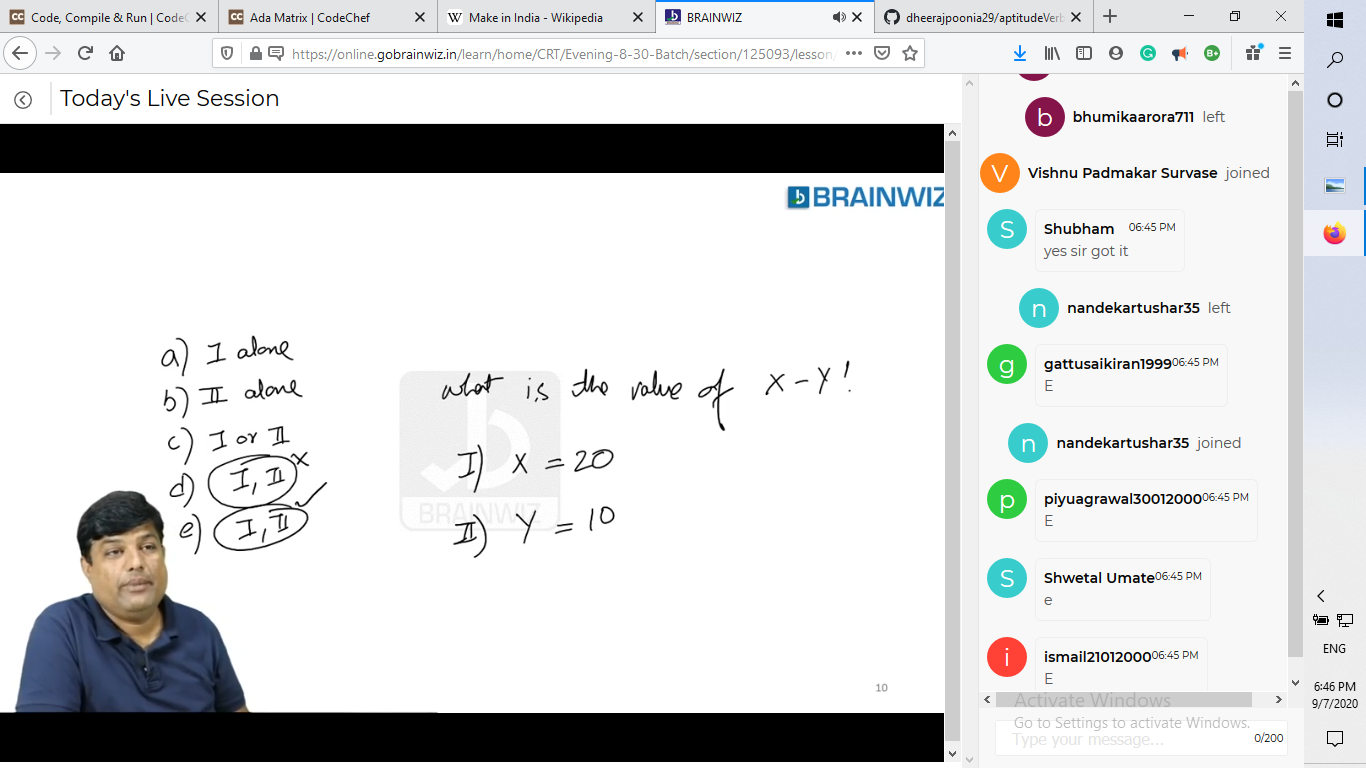 Code, Compile & Run | CodeC
Ada Matrix | CodeChef
Make in India - Wikipedia
BRAINWIZ
dheerajpoonia29/aptitudeVerb
https://online.gobrainwiz.in/learn/home/CRT/Evening-8-30-Batch/section/125093/lesson/
Today's Live Session
BRAINWIZ
a) I alone
b) II alone
c) I or II
d) I, II x
e) I, II ✓
what is the value of X - Y?
I) X = 20
II) Y = 10
BRAINWIZ
10
b
bhumikaarora711 left
V
Vishnu Padmakar Survase joined
S
Shubham 06:45 PM
yes sir got it
n
nandekartushar35 left
g
gattusaikiran1999 06:45 PM
E
n
nandekartushar35 joined
p
piyuagrawal30012000 06:45 PM
E
S
Shwetal Umate 06:45 PM
e
i
ismail21012000 06:45 PM
E
Activate Windows
Go to Settings to activate Windows.
Type your message...
0/200
ENG
6:46 PM
9/7/2020